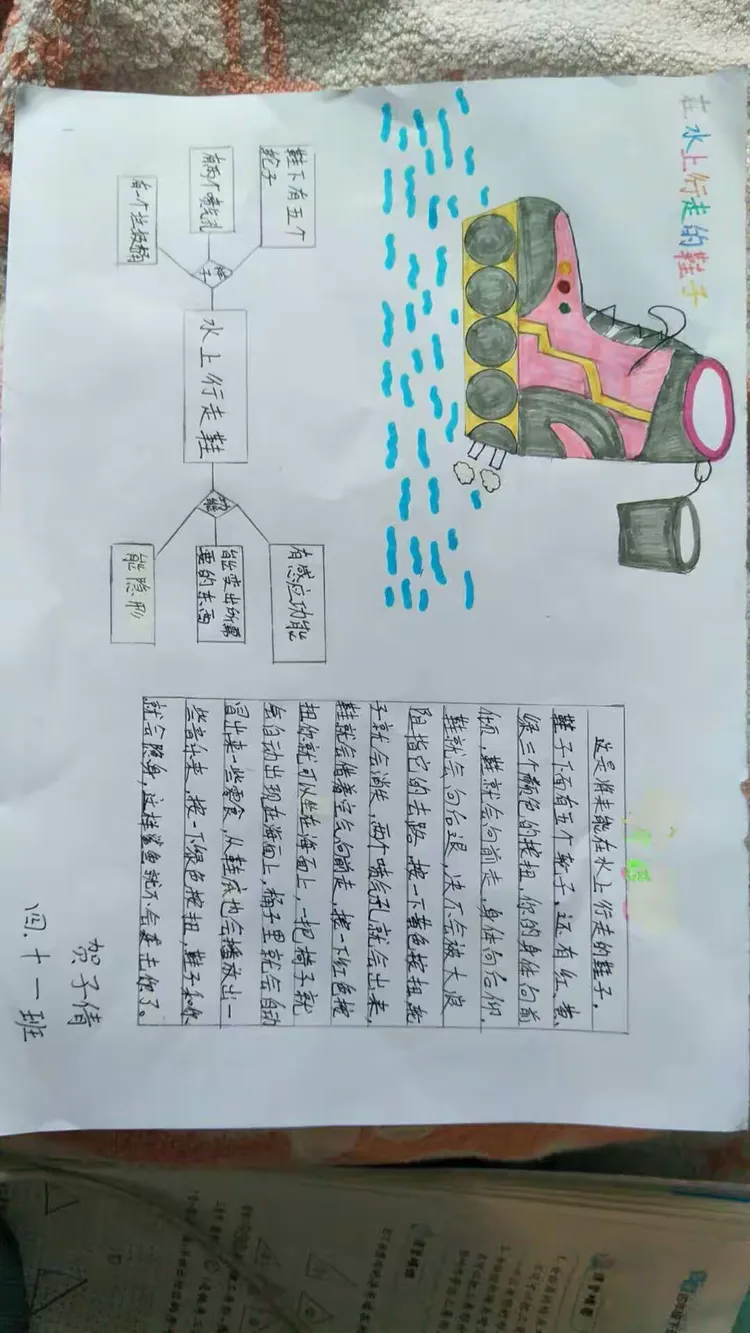 在水上行走的鞋子
鞋下有五个
轮子
有两个喷气孔
有一个垃圾桶
鞋
子
水上行走鞋
功能
有感应功能
能变出所需
要的东西
能隐形
这是将来能在水上行走的鞋子。
鞋子下面有五个轮子。还有红、黄、
绿三个颜色的按扭。你的身体向前
倾,鞋就会向前走,身体向后仰,
鞋就会向后退,决不会被大浪
阻挡它的去路。按一下黄色按扭,轮
子就会消失,两个喷气孔就会出来,
鞋就会借着空气向前走,按一下红色按
扭你就可以坐在海面上,一把椅子就
会自动出现在海面上,桶子里就会自动
冒出来一些零食,从鞋底也会播放出一
些音乐来,按一下绿色按扭,鞋子和你
就会隐身,这样鲨鱼就不会攻击你了。
贺子倩
四.十一班